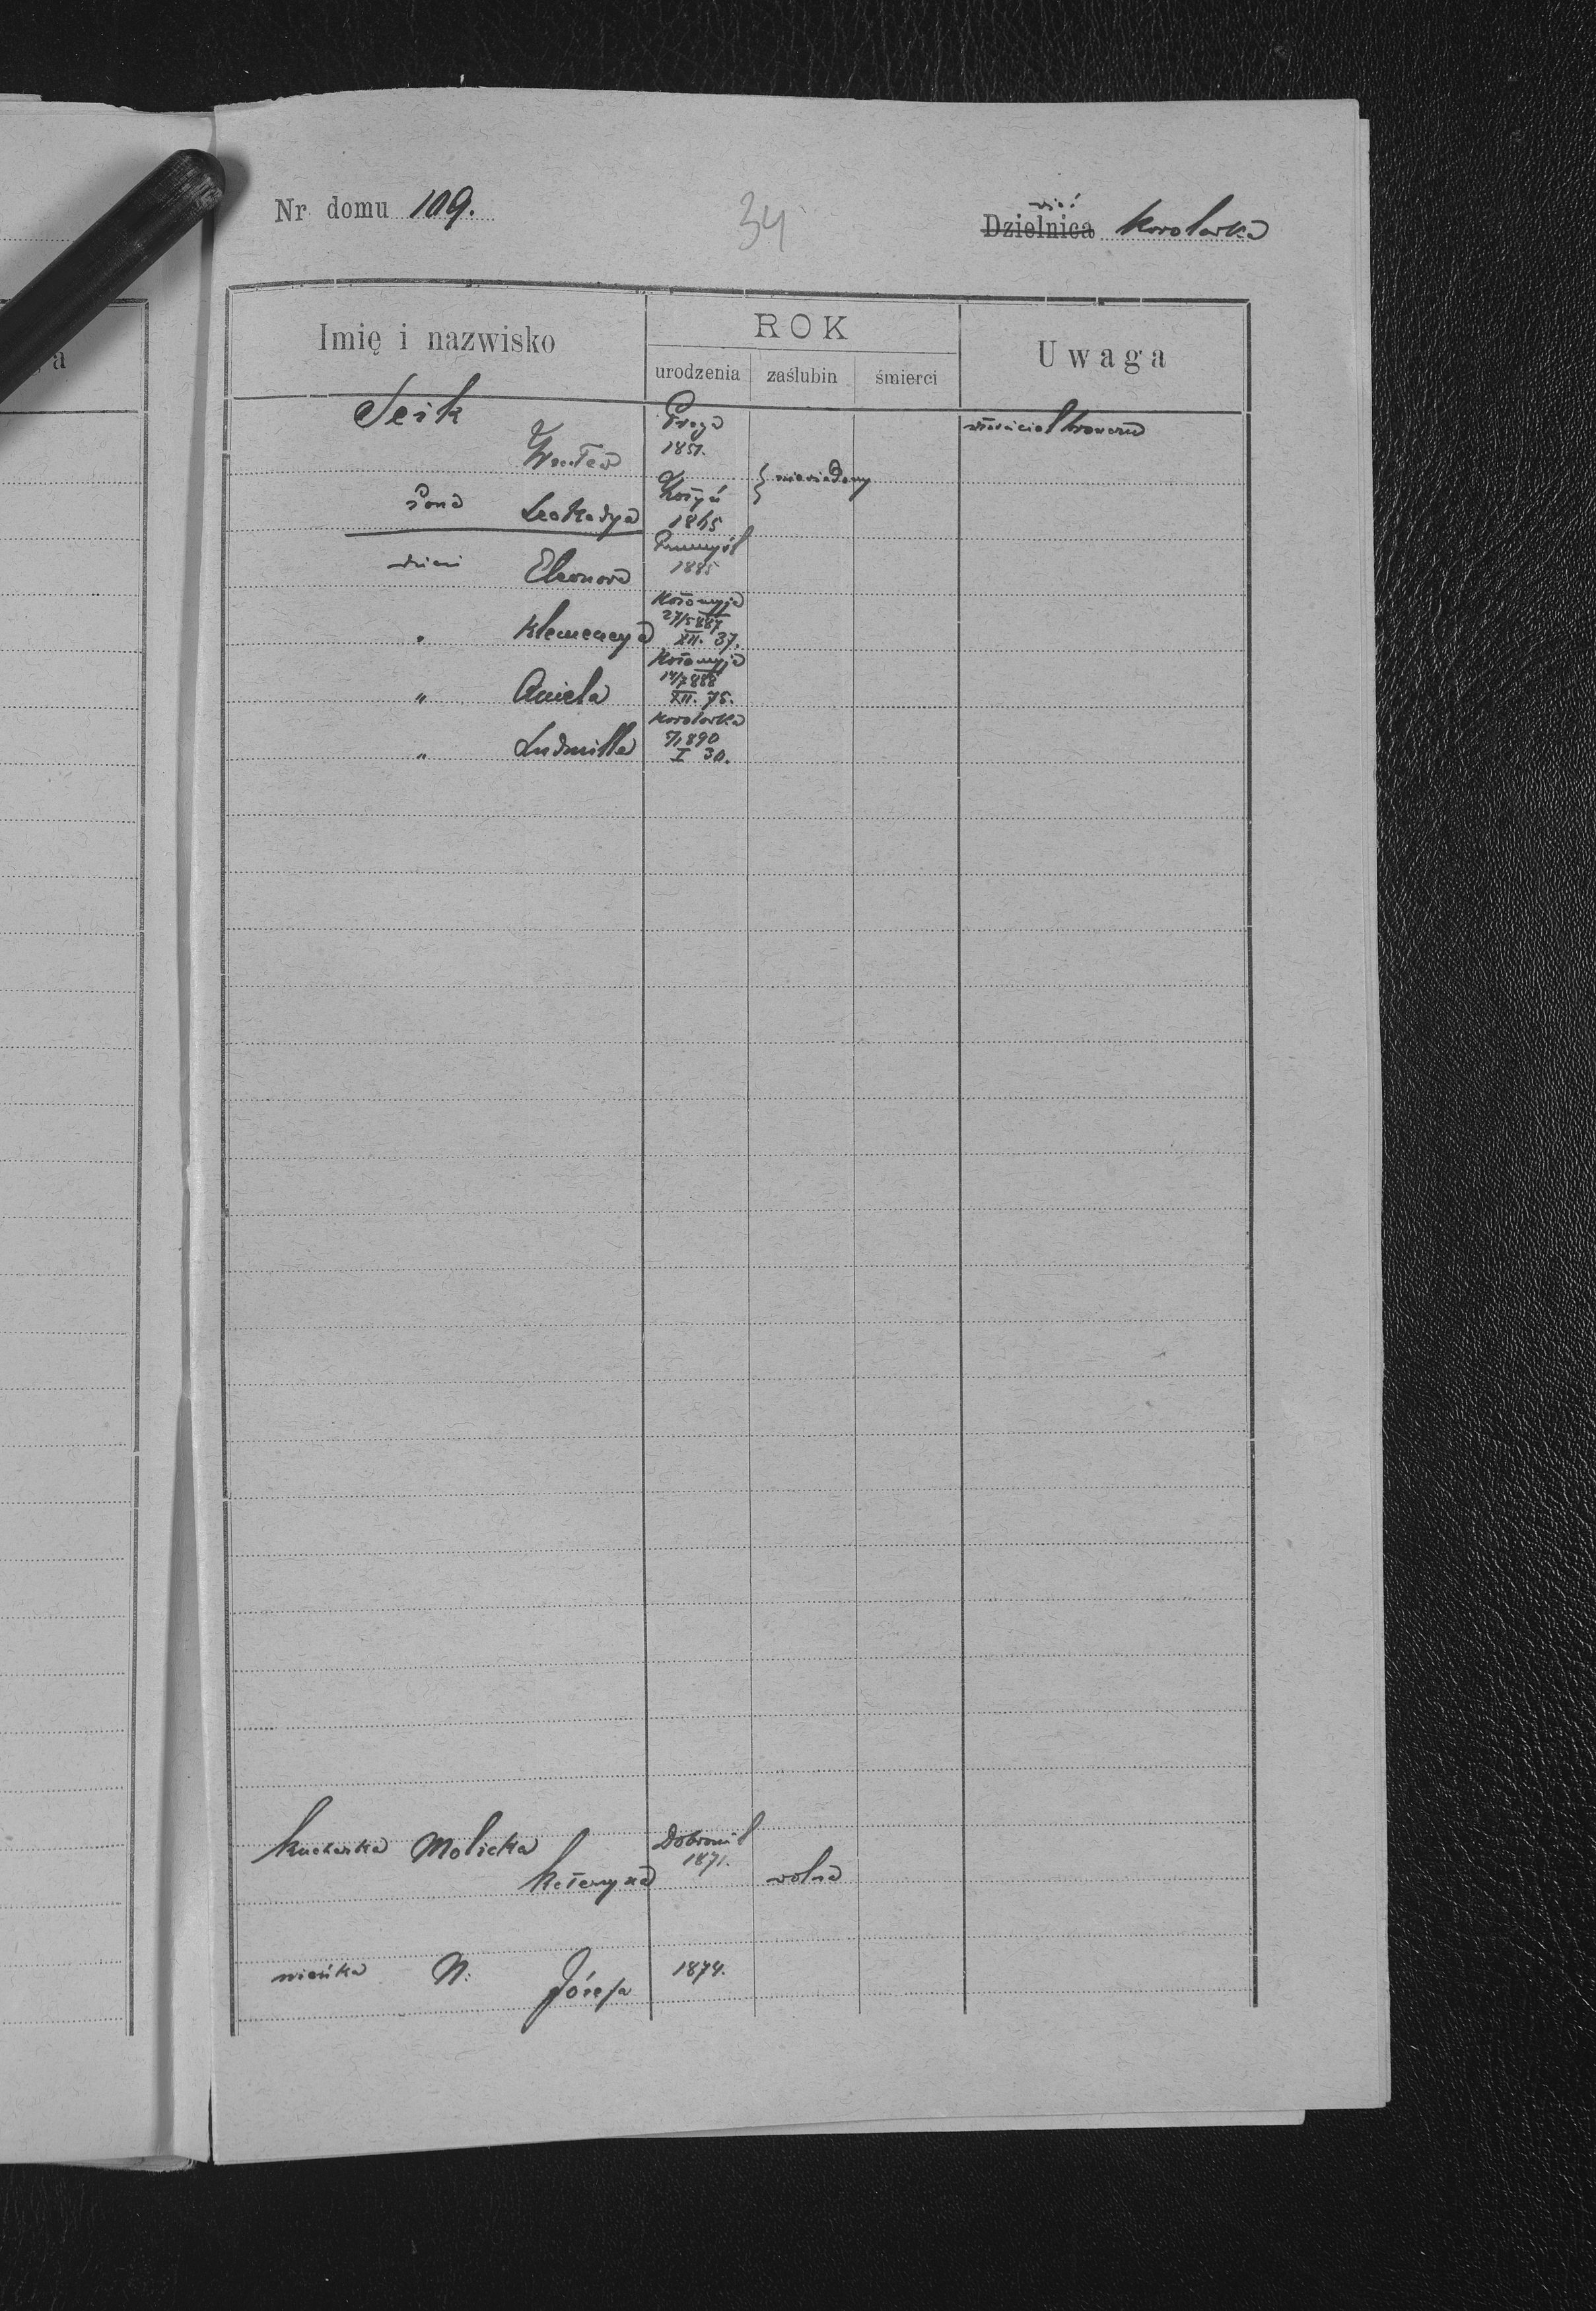 Nr domu 109.
34
wieś
Dzielnica Korolówka
Imię i nazwisko
ROK
urodzenia zaślubin śmierci
Uwaga
Seik
Praga
właściciel browaru
Wacław 1851.
żona Leokadya
niewiadomy
1865
dzieci Eleonora
Przemyśl
1885
Kołomyja
" Klemencya 27/5 887
XII. 37.
Kołomyja
" Aniela 14/7 888
XII. 75.
Korolówka
" Ludmilla 7/1 890
I 30.
kucharka Molicka
Dobromil
1871.
Katarzyna wolna
niańka N. Józefa 1874.